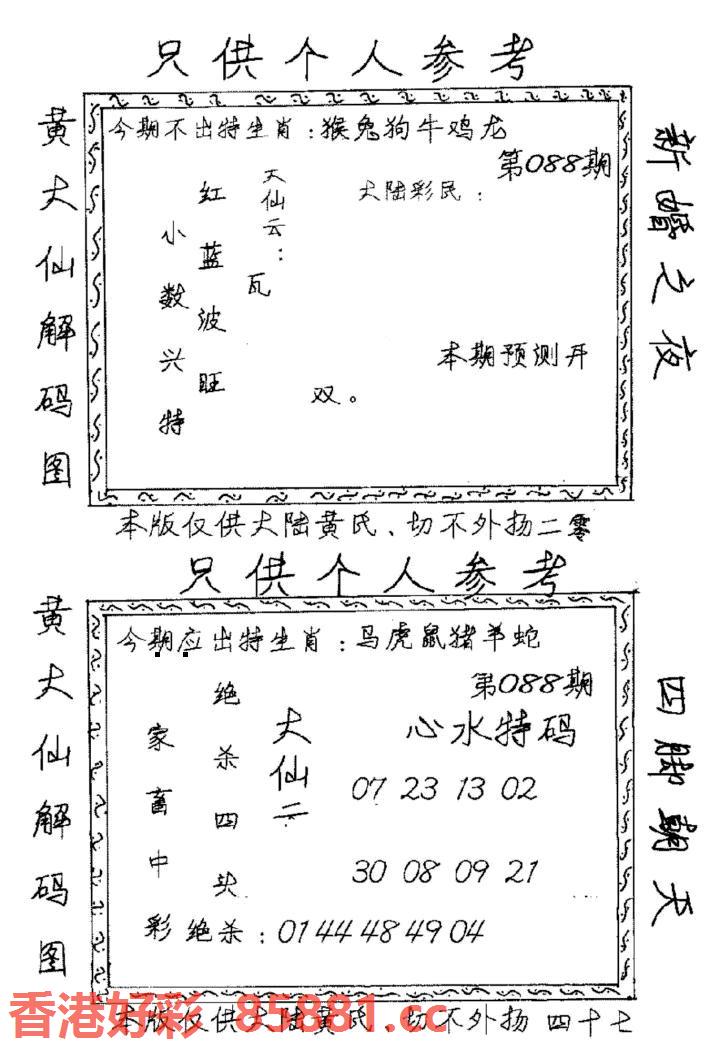 只供个人参考
黄大仙解码图
今期不出特生肖：猴兔狗牛鸡龙
第088期
新婚之夜
大仙云：
瓦
红蓝波旺
小数兴特
大陆彩民：
本期预测开
双。
本版仅供大陆黄氏、切不外扬二零
只供个人参考
黄大仙解码图
今期应出特生肖：马虎鼠猪羊蛇
第088期
四脚朝天
心水特码
大仙云
绝杀四头
家畜中彩
07 23 13 02
30 08 09 21
绝杀：01 44 48 49 04
本版仅供大陆黄氏、切不外扬 四十七
香港好彩 85881.cc